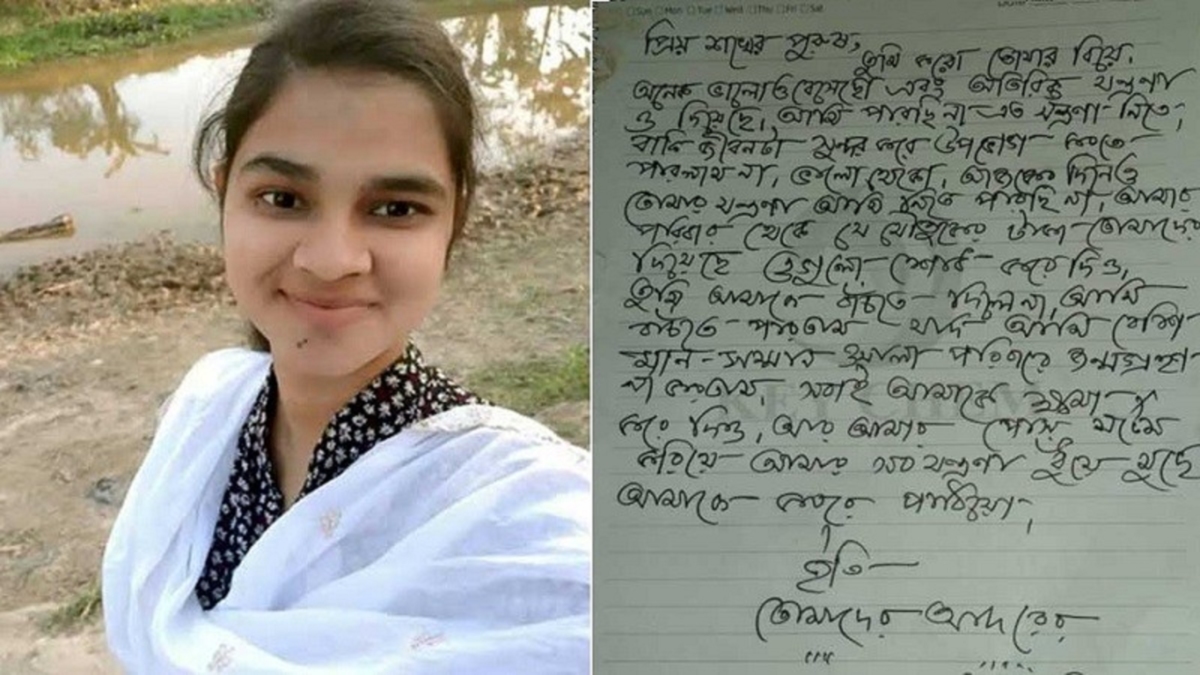 Sun Mon Tue Wed Thu Fri Sat
প্রিয় শখের পুরুষ,
তুমি করো তোমার বিয়ে,
অনেক ভালোও বেসেছো এবং অতিরিক্ত যন্ত্রণা
ও দিয়েছো, আমি পারছি না এত যন্ত্রণা নিতে,
বাকি জীবনটা সুন্দর করে উপভোগ করতে
পারলাম না, ভালো থেকো, আজকের দিনেও
তোমার যন্ত্রণা আমি নিতে পারছি না, আমার
পরিবার থেকে যে যৌতুকের টাকা তোমাদের
দিয়েছে ওগুলো শোধ করে দিও,
তুমি আমাকে বাঁচতে দিলে না, আমি
বাঁচতে পারতাম যদি আমি বেশি
মান-সম্মান ওয়ালা পরিবারে জন্মগ্রহণ
না করতাম, সবাই আমাকে ক্ষমা
করে দিও, আর আমার পোস্ট মর্টেম
করিয়ে আমার সব যন্ত্রণা ধুঁয়ে মুছে
আমাকে কবরে পাঠাইয়ো,
ইতি—
তোমাদের আদরের